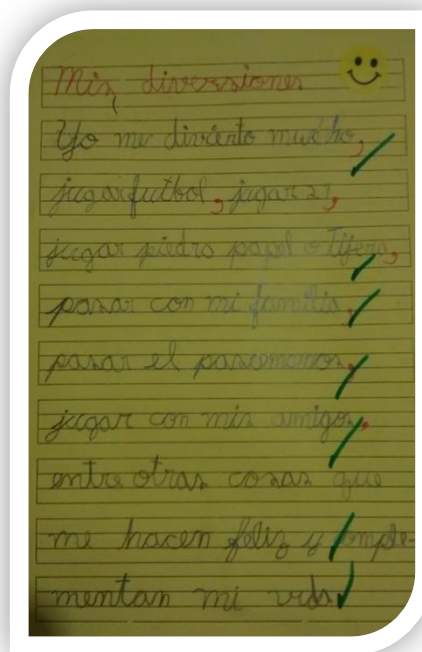 Mis diversiones
Yo me divierto mucho,
jugar futbol, jugar 21,
jugar piedra papel o tijera,
pasar con mi familia,
pasar el pasamanos,
jugar con mis amigos,
entre otras cosas que
me hacen feliz y comple-
mentan mi vida